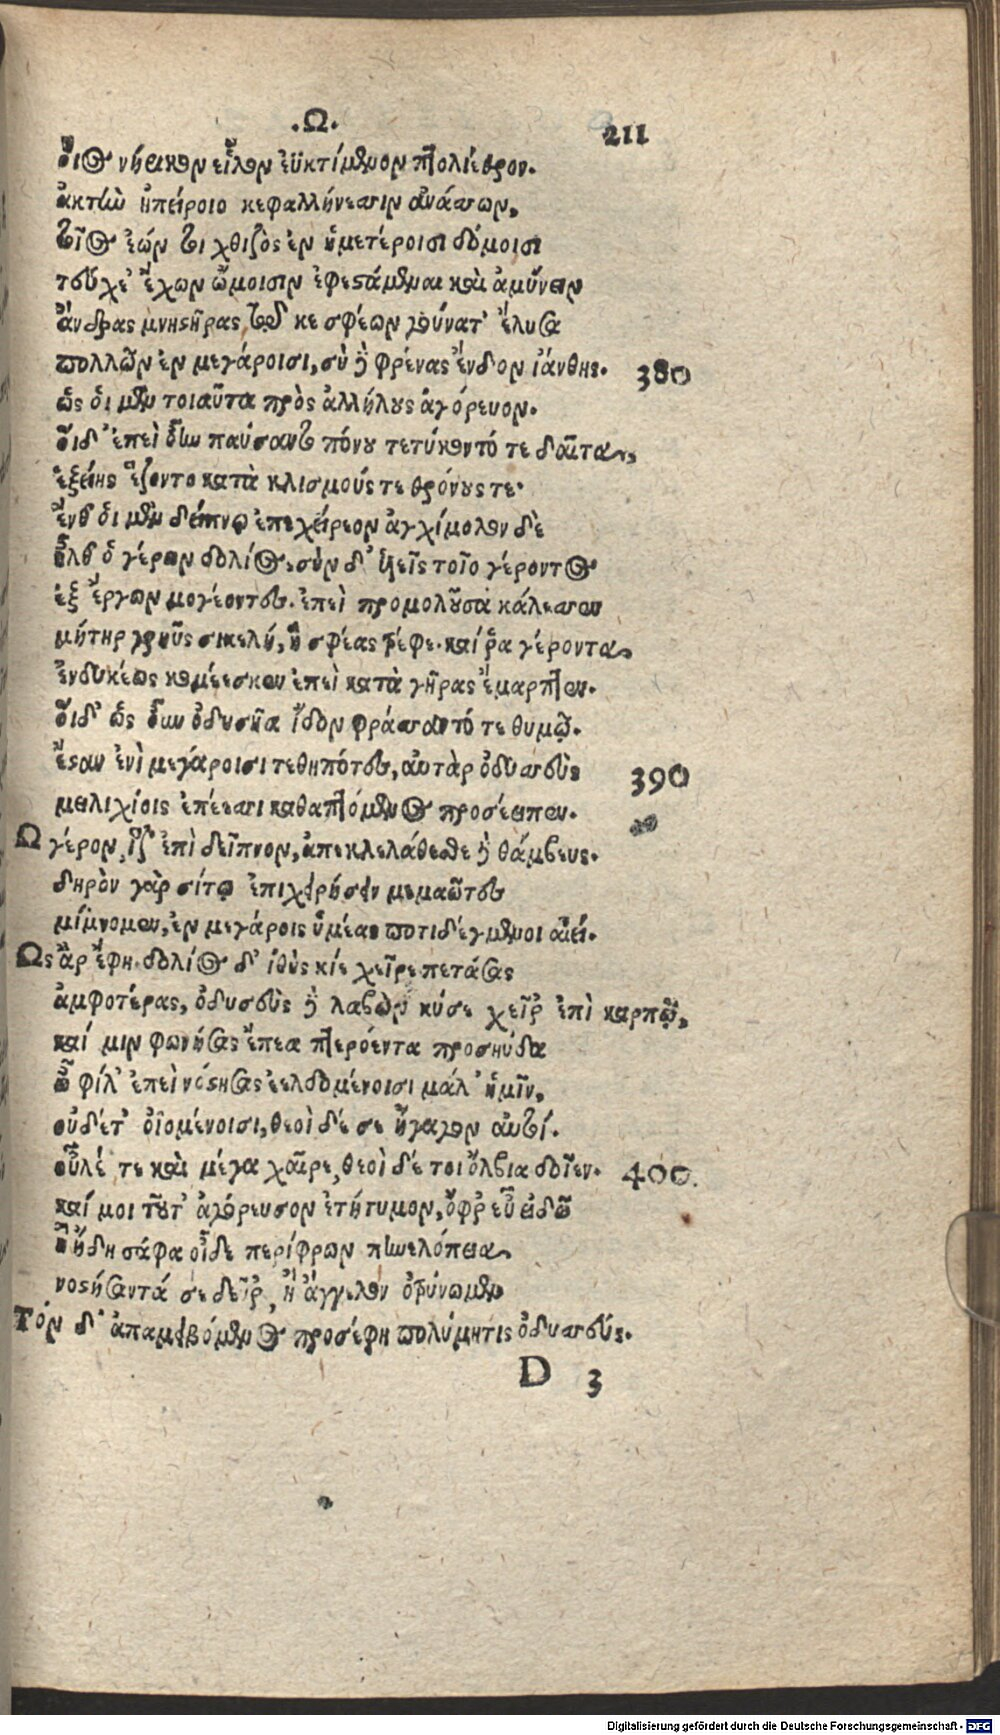 .Ω. 211
οἷος νήεικον εἷλον ἐϋκτίμενον πτολίεθρον.
ἀκτὴν ἠπείροιο κεφαλλήνεσσιν ἀνάσσων,
τοῖος ἐών τοι χθιζὸς ἐν ἡμετέροισι δόμοισι
τεύχε' ἔχων ὤμοισιν ἐφεστάμεναι καὶ ἀμύνειν
ἄνδρας μνηστῆρας, τῷ κε σφέων γούνατ' ἔλυσα
πολλῶν ἐν μεγάροισι, σὺ δὲ φρένας ἔνδον ἰάνθης. 380
ὣς ὁι μὲν τοιαῦτα πρὸς ἀλλήλους ἀγόρευον.
ὅιδ' ἐπεὶ οὖν παύσαντο πόνου τετύκοντό τε δαῖτα,
ἑξείης ἕζοντο κατὰ κλισμούς τε θρόνους τε.
ἔνθ' ὁι μὲν δείπνῳ ἐπεχείρεον ἀγχίμολον δὲ
ἦλθ' ὁ γέρων δολίος, σὺν δ' ὑιεῖς τοῖο γέροντος
ἐξ ἔργων μογέοντες. ἐπεὶ προμολοῦσα κάλεσσεν
μήτηρ γρηῦς σικελή, ἥ σφέας τρέφε. καί ῥα γέροντα
ἐνδυκέως κομέεσκεν ἐπεὶ κατὰ γῆρας ἔμαρπτεν.
ὅιδ' ὡς οὖν ὀδυσῆα ἴδον φράσσαντό τε θυμῷ.
ἔσαν ἐνὶ μεγάροισι τεθηπότες, αὐτὰρ ὀδυσσεὺς 390
μειλιχίοις ἐπέεσσι καθαπτόμενος προσέειπεν.
Ω γέρον, ἵζ' ἐπὶ δεῖπνον, ἀπεκλελάθεσθε δὲ θάμβευς.
δηρὸν γὰρ σίτῳ ἐπιχειρήσειν μεμαῶτες
μίμνομεν, ἐν μεγάροις ὑμέας ποτιδέγμενοι αἰεί.
Ως ἂρ ἔφη. δολίος δ' ἰθὺς κίε χεῖρε πετάσας
ἀμφοτέρας, ὀδυσεὺς δὲ λαβὼν κύσε χεῖρ' ἐπὶ καρπῷ,
καί μιν φωνήσας ἔπεα πτερόεντα προσηύδα
ὦ φίλ' ἐπεὶ νόστησας ἐελδομένοισι μάλ' ἡμῖν,
οὐδέτ' ὀϊομένοισι, θεοὶ δέ σε ἤγαγον αὐτοί.
οὖλέ τε καὶ μέγα χαῖρε, θεοὶ δέ τοι ὄλβια δοῖεν. 400.
καί μοι τοῦτ' ἀγόρευσον ἐτήτυμον, ὄφρ' εὖ εἰδῶ
ἢ ἤδη σάφα οἶδε περίφρων πηνελόπεια
νοστήσαντά σε δεῦρ', ἢ ἄγγελον ὀτρύνωμεν
Τὸν δ' ἀπαμειβόμενος προσέφη πολύμητις ὀδυσσεύς.
D 3
Digitalisierung gefördert durch die Deutsche Forschungsgemeinschaft - DFG